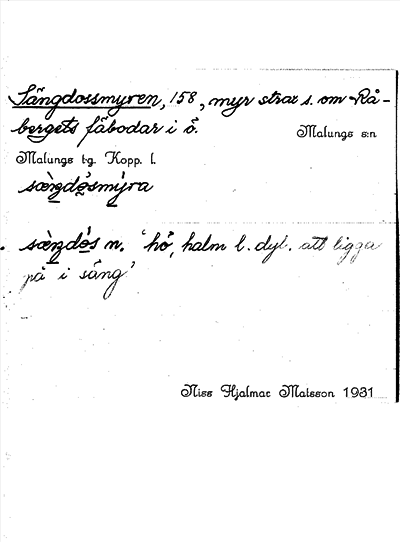 Sängdossmyren, 158, myr strax s. om Rå-
bergets fäbodar i ö.
Malungs s:n
Malungs t-g. Kopp. l.
sæŋdòsmy̆ra
sæŋdòs n. 'hö, halm l. dyl. att ligga
på i säng'
Niss Hjalmar Matsson 1931